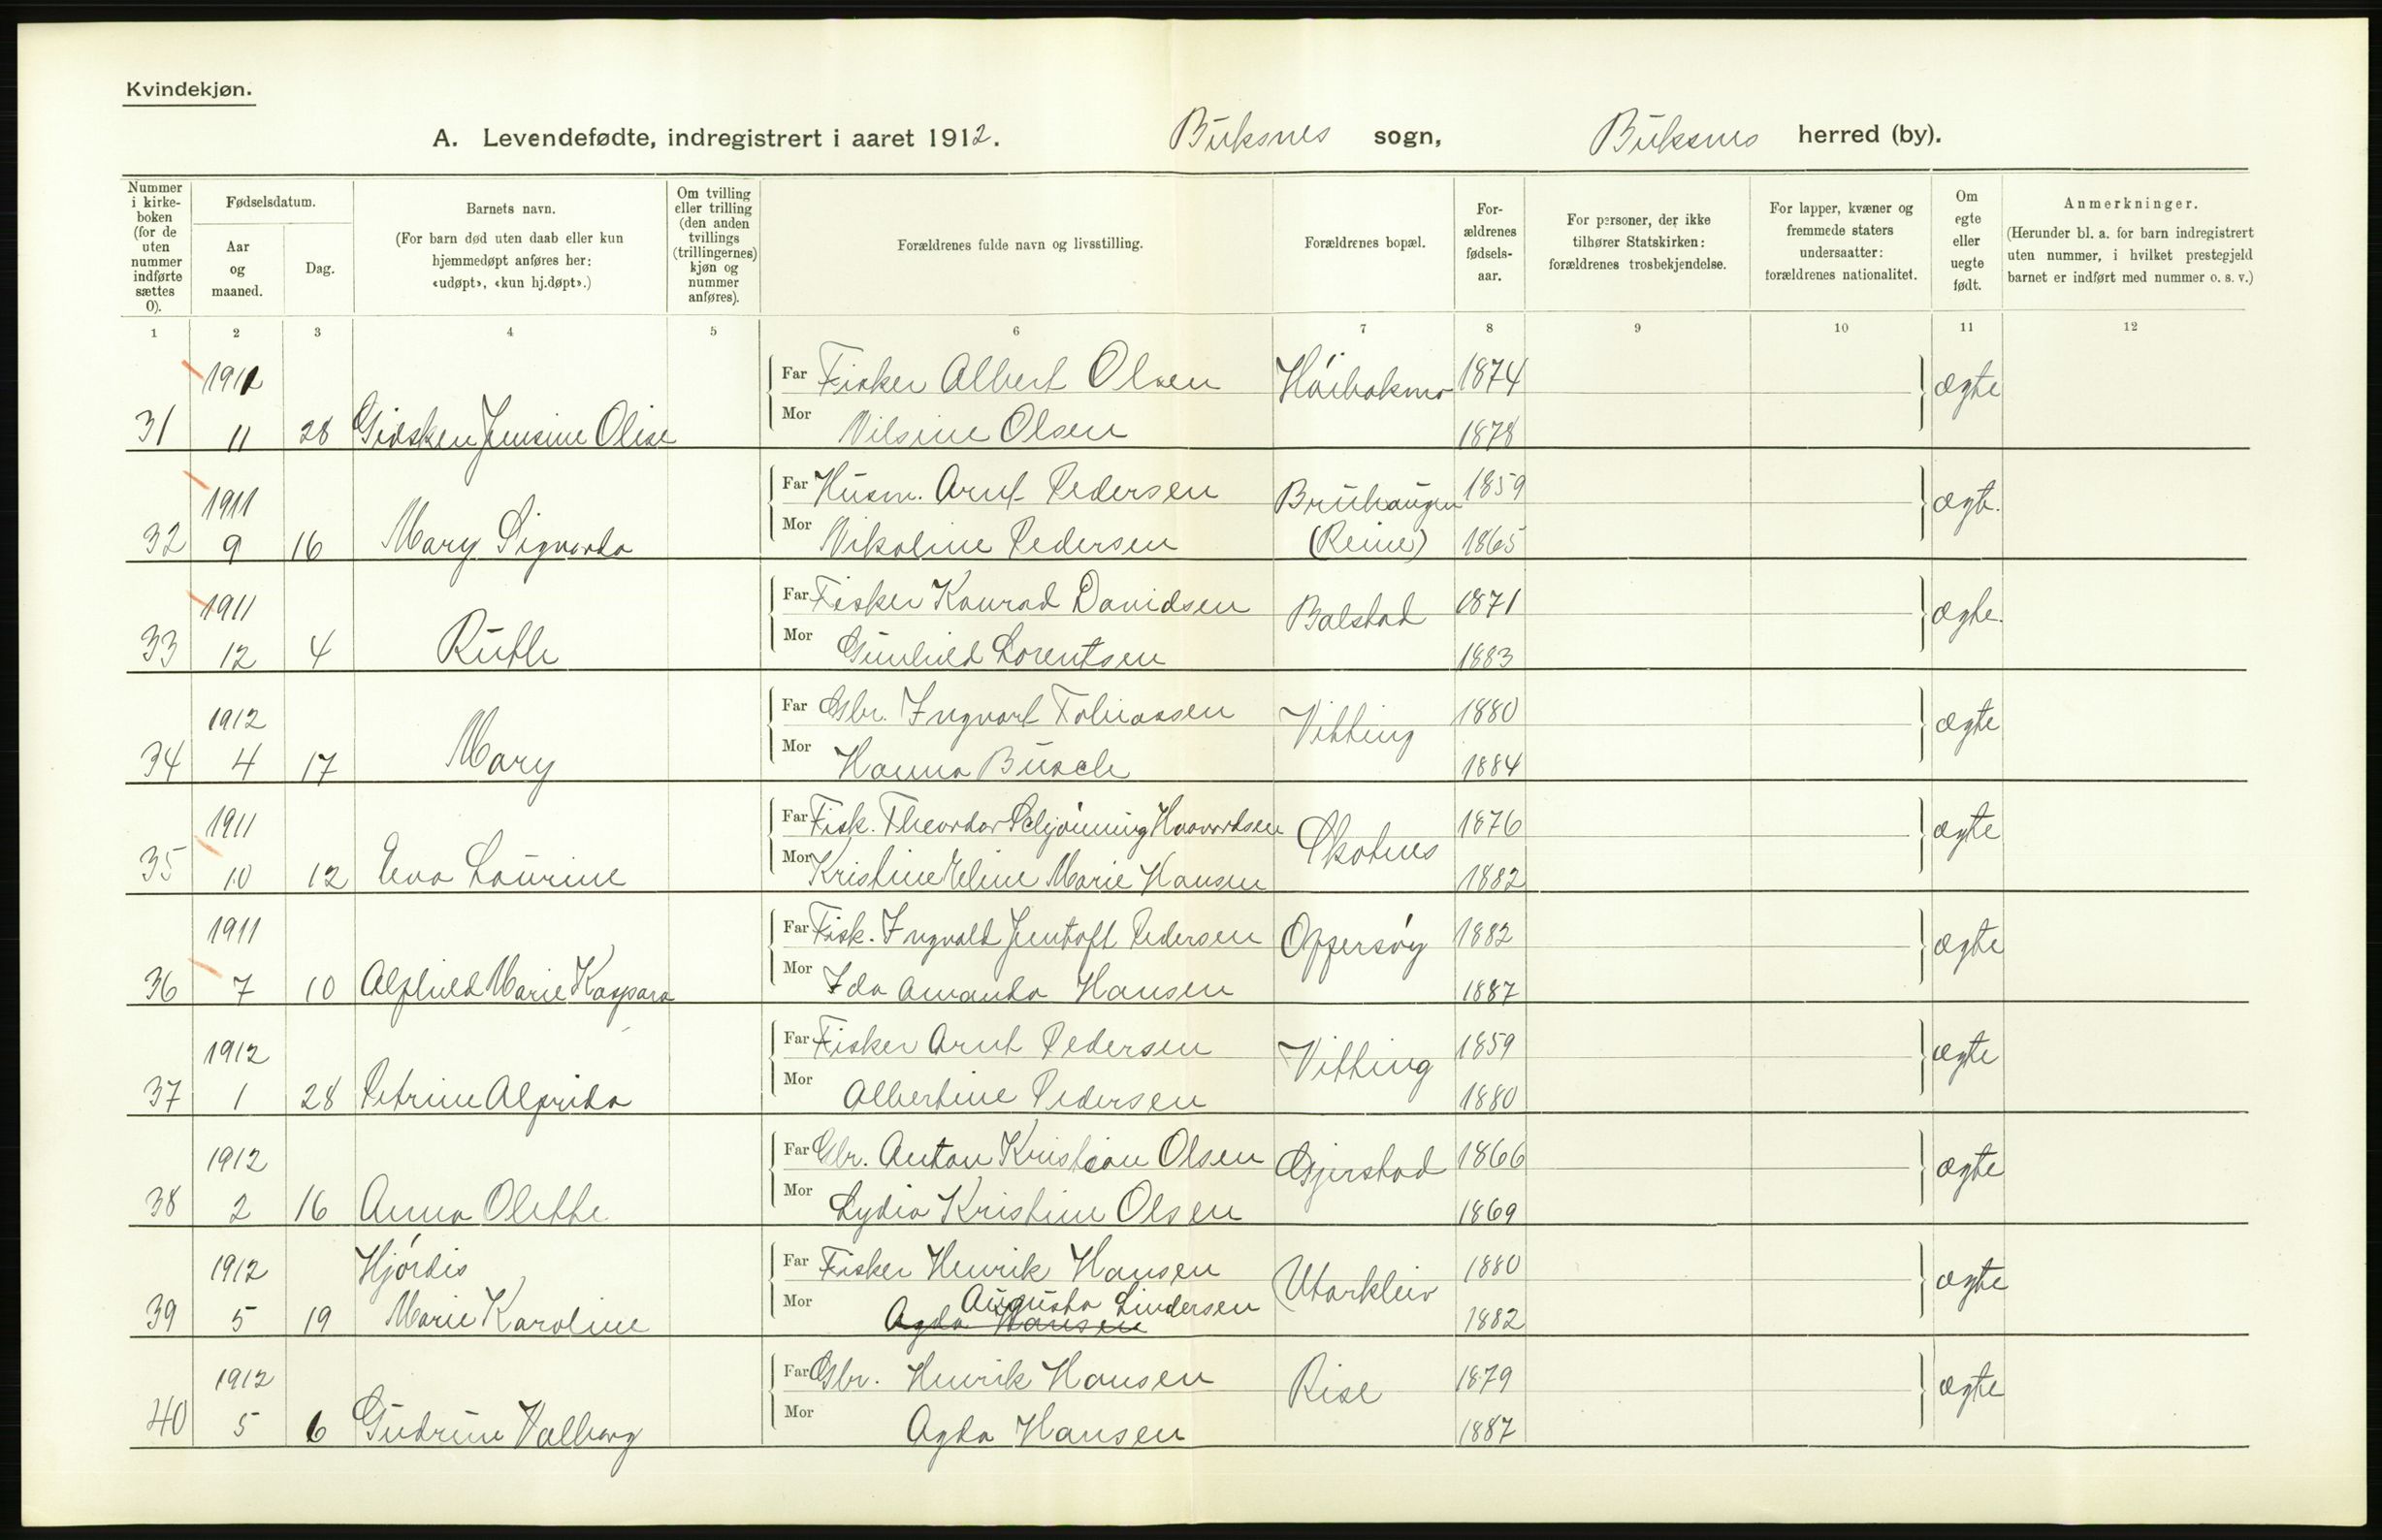 Kvindekjøn.
A. Levendefødte, indregistrert i aaret 1912. Buksnes sogn, Buksnes herred (by).
Nummer i kirkeboken (for de uten nummer indførte sættes 0).
Fødselsdatum.
Aar og maaned.
Dag.
Barnets navn. (For barn død uten daab eller kun hjemmedøpt anføres her: «udøpt», «kun hj.døpt».)
Om tvilling eller trilling (den anden tvillings (trillingernes) kjøn og nummer anføres).
Forældrenes fulde navn og livsstilling.
Forældrenes bopæl.
Forældrenes fødselsaar.
For personer, der ikke tilhører Statskirken: forældrenes trosbekjendelse.
For lapper, kvæner og fremmede staters undersaatter: forældrenes nationalitet.
Om egte eller uegte født.
Anmerkninger. (Herunder bl. a. for barn indregistrert uten nummer, i hvilket prestegjeld barnet er indført med nummer o. s. v.)
1 2 3 4 5 6 7 8 9 10 11 12
1911 Far Fisker Albert Olsen 1874 ægte
31 11 28 Gidsken Jensine Olise Mor Nilsine Olsen 1878
1911 Far Husm. Arnt Pedersen Bruhaugen 1859 ægt.
32 9 16 Mary Sigvarda Mor Nikoline Pedersen (Reine) 1865
1911 Far Fisker Konrad Davidsen Balstad 1871 ægte.
33 12 4 Ruth Mor Gunhild Lorentsen 1883
1912 Far Gbr. Ingvart Tobiassen Vitting 1880 ægte
34 4 17 Mary Mor Hanna Busch 1884
1911 Far Fisk. Theordor Schjønning Haavardsen Skotnes 1876 ægte
35 10 12 Eva Laurine Mor Kristine Eline Marie Hansen 1882
1911 Far Fisk. Ingvald Jentoft Pedersen Oppersøy 1882 ægte
36 7 10 Alfhild Marie Kaspara Mor Ida Amanda Hansen 1887
1912 Far Fisker Arnt Pedersen Vitting 1859 ægte
37 1 28 Petrine Alfrida Mor Albertine Pedersen 1880
1912 Far Gbr. Anton Kristian Olsen Gjerstad 1866 ægte
38 2 16 Anna Olette Mor Lydia Kristine Olsen 1869
1912 Hjørdis Far Fisker Henrik Hansen Utakleiv 1880 ægte
39 5 19 Marie Karoline Mor Augusta Lindersen 1882
Agda Hansen
1912 Far Gbr. Henrik Hansen Rise 1879 ægte
40 5 6 Gudrun Valborg Mor Agda Hansen 1887